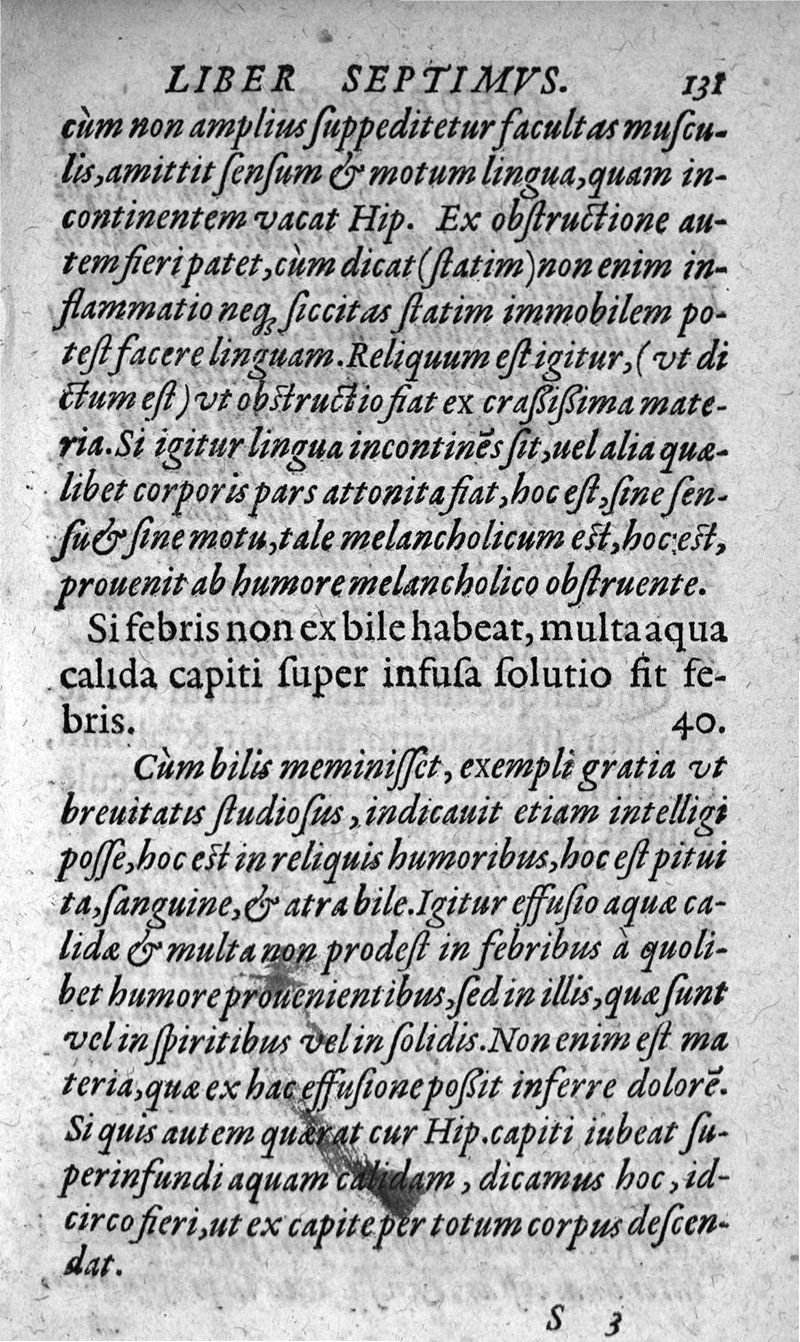 LIBER SEPTIMVS. 131
cùm non amplius ſuppeditetur facultas muſcu-
lis, amittit ſenſum & motum lingua, quam in-
continentem vacat Hip. Ex obſtructione au-
tem fieri patet, cùm dicat (ſtatim) non enim in-
flammatio neq; ſiccitas ſtatim immobilem po-
teſt facere linguam. Reliquum eſt igitur, (vt di
ctum eſt) vt obſtructio fiat ex craſſiſſima mate-
ria. Si igitur lingua incontinēs ſit, uel alia quæ-
libet corporis pars attonita fiat, hoc eſt, ſine ſen-
ſu & ſine motu, tale melancholicum eſt, hoc eſt,
prouenit ab humore melancholico obſtruente.
Si febris non ex bile habeat, multa aqua
calida capiti ſuper infuſa ſolutio fit fe-
bris. 40.
Cùm bilis meminiſſet, exempli gratia vt
breuitatis ſtudioſus, indicauit etiam intelligi
poſſe, hoc eſt in reliquis humoribus, hoc eſt pitui
ta, ſanguine, & atra bile. Igitur effuſio aquæ ca-
lidæ & multa non prodeſt in febribus à quoli-
bet humore prouenientibus, ſed in illis, quæ ſunt
vel in ſpiritibus vel in ſolidis. Non enim eſt ma
teria, quæ ex hac effuſione poſſit inferre dolorē.
Si quis autem quærat cur Hip. capiti iubeat ſu-
perinfundi aquam calidam, dicamus hoc, id-
circo fieri, ut ex capite per totum corpus deſcen-
dat.
S 3